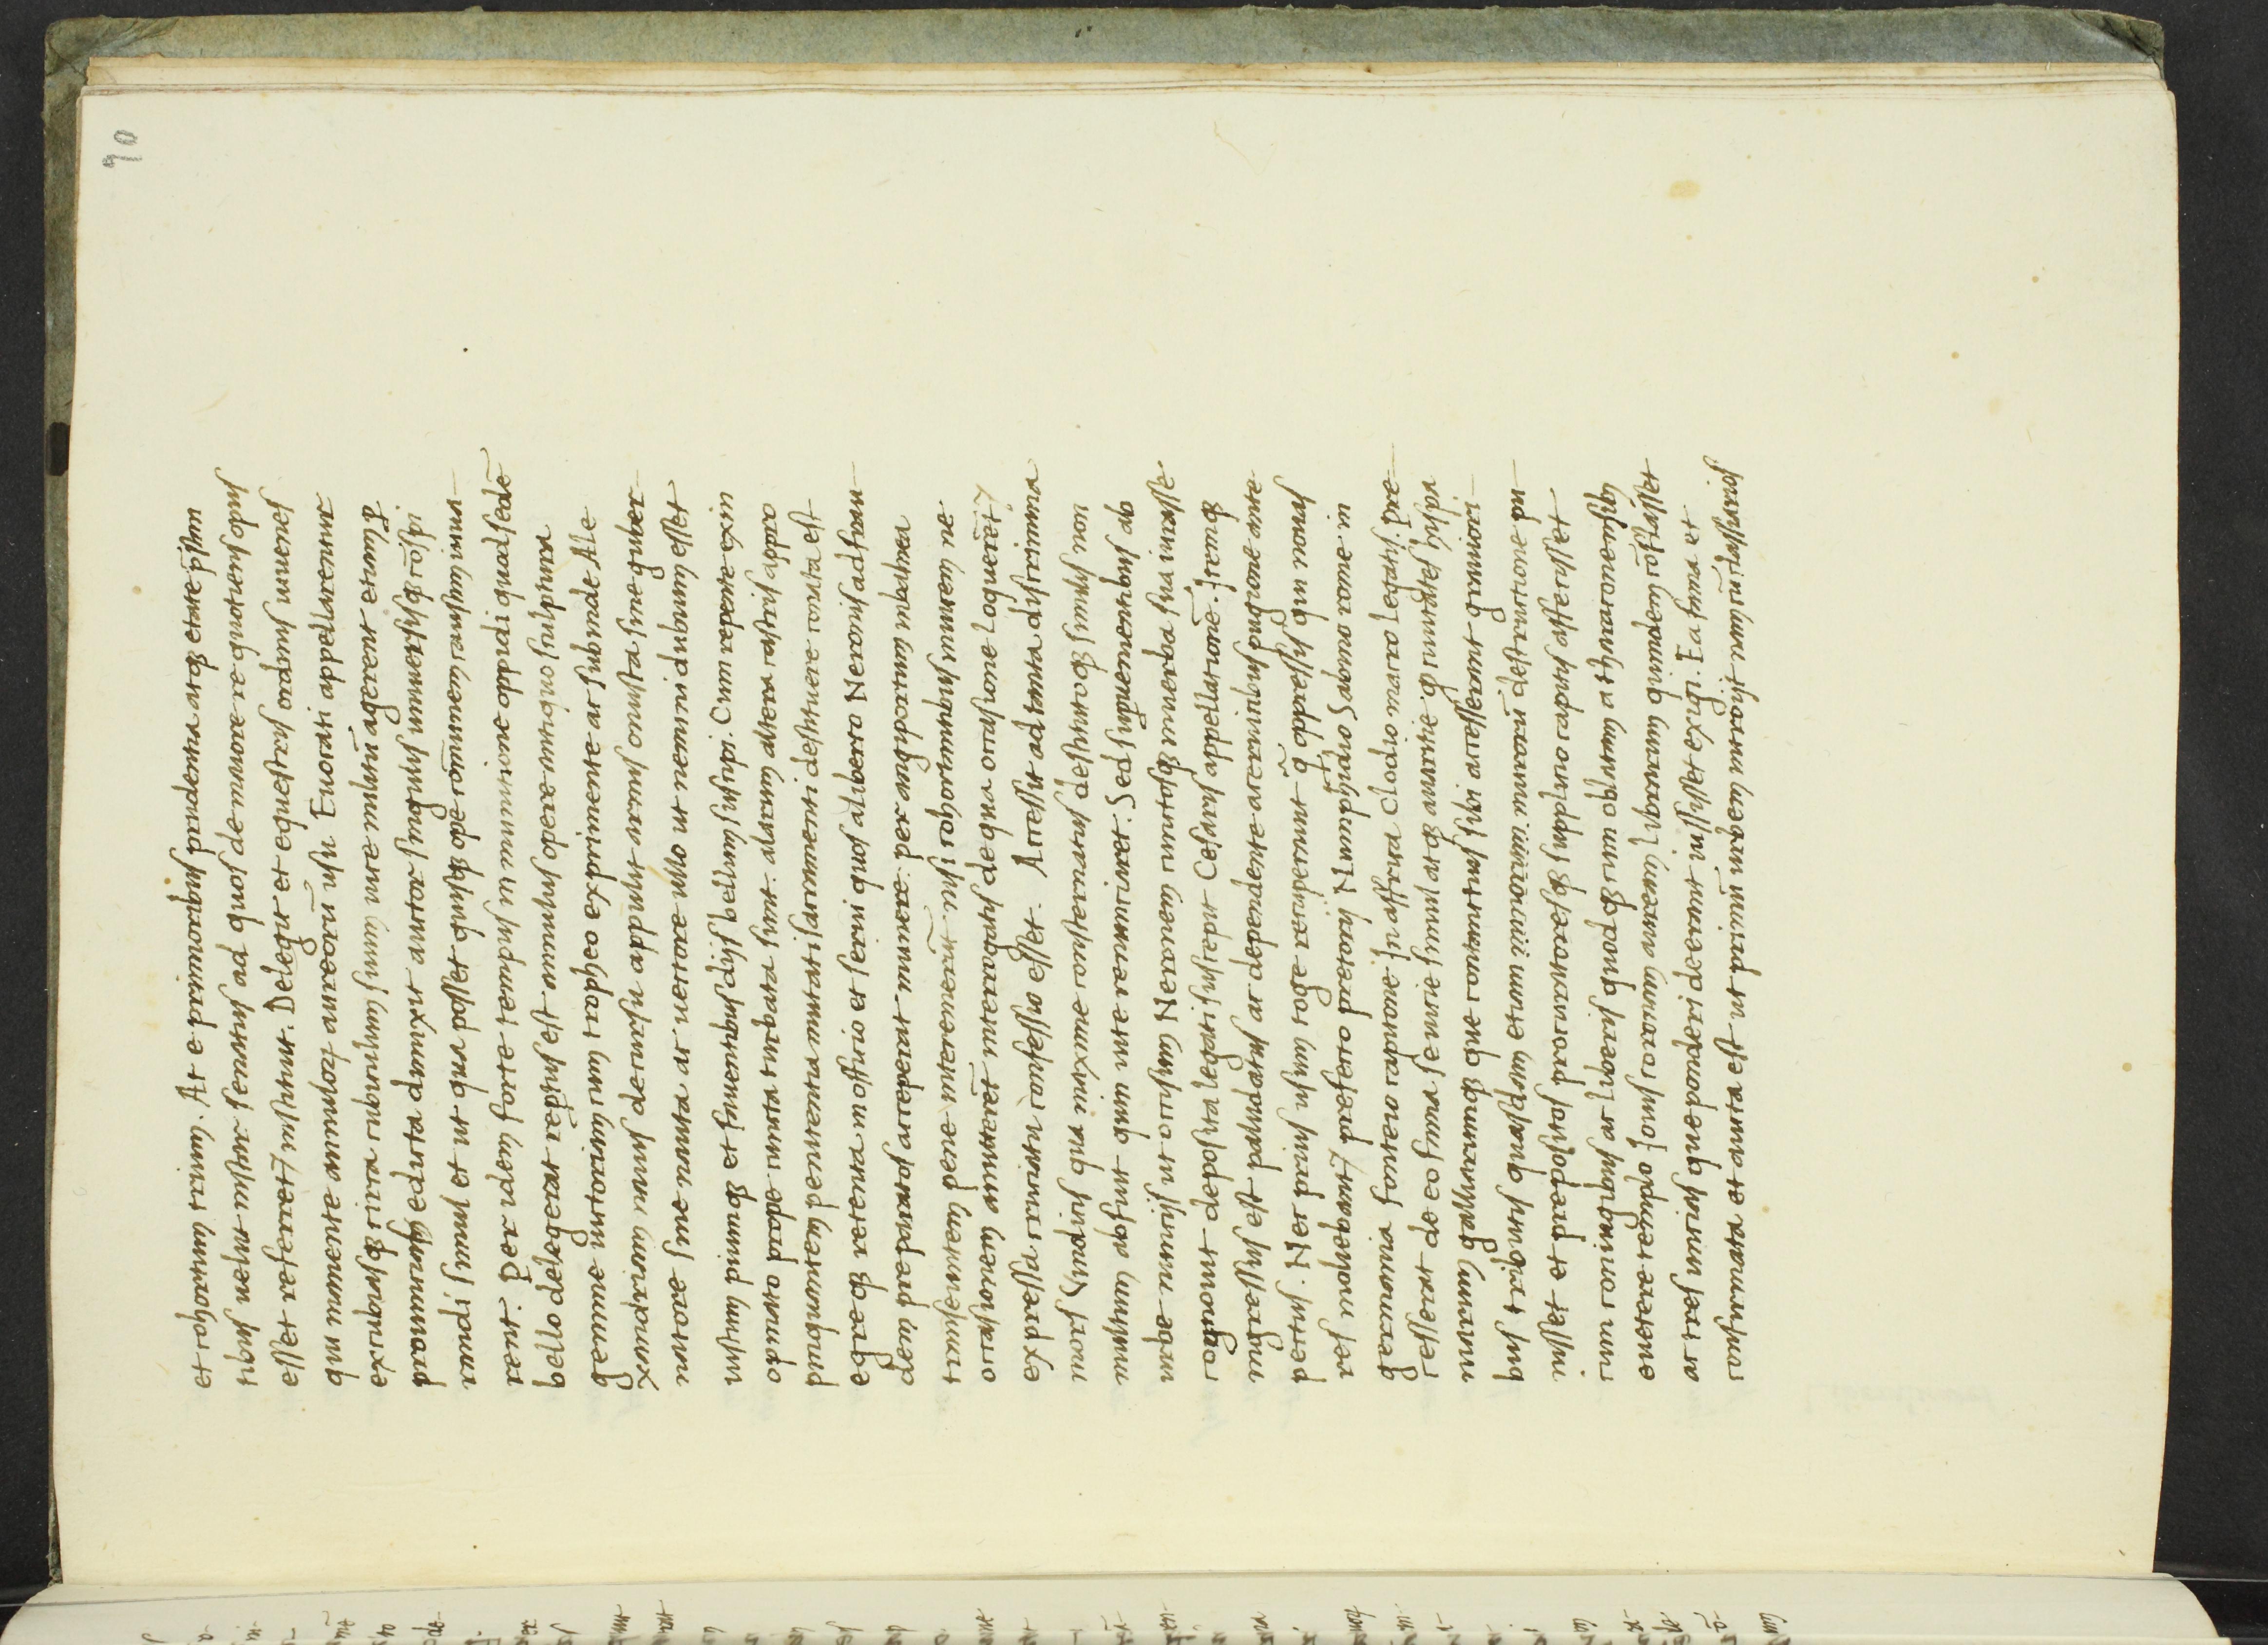 90
et cohortium trium. At e primoribus prudentia atqꝫ etate p̄stan
tibus uelut instar senatus ad quos de maiore re quotiens opus
esset referret/ instituit. Delegit et equestris ordinis iuuenes
qui manente annuloꝝ aureorū usu Euocati appellarentur
excubiasqꝫ circa cubiculum suum uice militū agerent etiam ꝑ
prouincias edicta dimixit auctor singulis uniuersisqꝫ cōspi
randi simul et ut qua posset quisqꝫ ope cōmunem causam iuua-
rent. Per idem forte tempus in munitione oppidi quod sedē
bello delegerat reptus est annulus opere antiquo sculptura
gemme uictoriam cum tropheo exprimente ac subinde Ale
xandriam nauis decursu appulit armis onusta sine guber-
natore sine nauta ac uectore ullo ut nemini dubium esset
iustum piumqꝫ et fauentibus dijs bellum suscipi. Cum repente exin
opinato prope cuncta turbata sunt. alarum altera castris appro
pinquantem penitentia mutati sacramenti destituere conata est
egreqꝫ retenta in offitio et serui quos a liberto Neronis ad frau-
dem preparatos acceperat munere per angiportum in balnea
transeuntem pene interemerūt nisi cohortantibus inuicem ne
occasionem amitterēt interrogatis de qua occasione loquerēt̄/
expressa cruciatu confessio esset. Accessit ad tanta discrimina
mors Vindicis qua maxime consternatus destitutoqꝫ similis non
multum abfuit quin uite renuntiaret. Sed suꝑuenientibus ab
urbe nuntijs ut occisum Neronem cunctosqꝫ in uerba sua iurasse
cognouit deposita legati suscepit Cesaris appellationē. Iterqꝫ
ingressus est paludatus ac dependente a ceruicibus pugione ante
pectus. Nec prius usum toge recuperauit q̄ oppressis qui nouas
res moliebant̄/ prefecto pretorij Nimphidio Sabino rome in
germania fonteio capitone In affrica Clodio macro legatis. Pre-
cesserat de eo fama seuitie simul atqꝫ auaritie ꝙ ciuitates hispa
niarum galliarumqꝫ que contantius sibi accesserant grauiori-
bus tributis quasdam etiam murorū destructione pu-
nisset et prepositos procuratoresqꝫ supplitio capitis affecisset
cum coniugibus ac liberis quodqꝫ cum oblatam a tharaconensibꝫ
e uetere templo Iouis coronam auream librarum quindem cōflasset
ac tres uncias que ponderi deerant iussisset exigi. Ea fama et
confirmata et aucta est ut primū urbem introijt nam cū classiarios